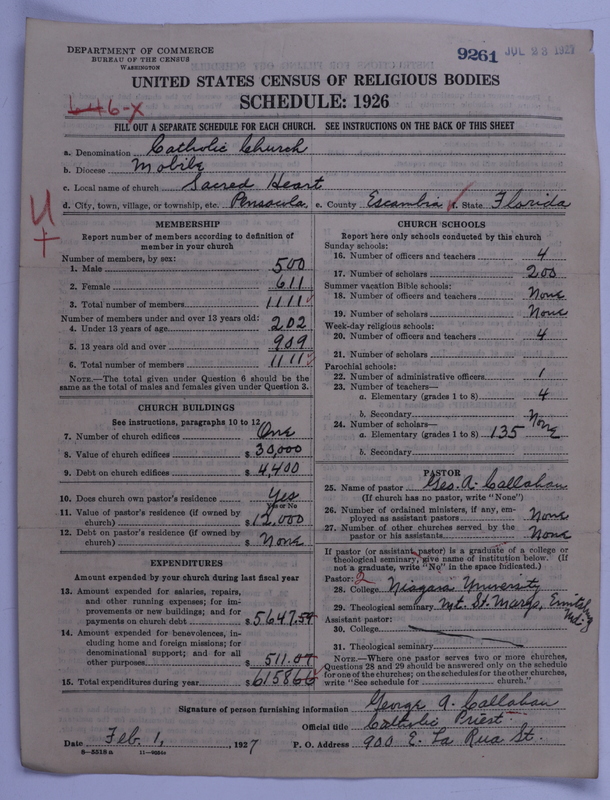 DEPARTMENT OF COMMERCE
BUREAU OF THE CENSUS
WASHINGTON
9261 JUL 23 1927
UNITED STATES CENSUS OF RELIGIOUS BODIES
SCHEDULE: 1926
646-x
FILL OUT A SEPARATE SCHEDULE FOR EACH CHURCH. SEE INSTRUCTIONS ON THE BACK OF THIS SHEET
a. Denomination Catholic Church
b. Diocese Mobile
c. Local name of church Sacred Heart
d. City, town, village, or township, etc. Pensacola e. County Escambia f. State Florida
U
MEMBERSHIP
Report number of members according to definition of
member in your church
Number of members, by sex:
1. Male 500
2. Female 611
3. Total number of members 1111
Number of members under and over 13 years old:
4. Under 13 years of age 202
5. 13 years old and over 909
6. Total number of members 1111
NOTE.—The total given under Question 6 should be the
same as the total of males and females given under Question 3.
CHURCH BUILDINGS
See instructions, paragraphs 10 to 12
7. Number of church edifices One
8. Value of church edifices $ 30,000
9. Debt on church edifices $ 4,400
10. Does church own pastor's residence Yes
Yes or No
11. Value of pastor's residence (if owned by
church) $ 12,000
12. Debt on pastor's residence (if owned by
church) $ None
EXPENDITURES
Amount expended by your church during last fiscal year
13. Amount expended for salaries, repairs,
and other running expenses; for im-
provements or new buildings; and for
payments on church debt $ 5647.59
14. Amount expended for benevolences, in-
cluding home and foreign missions; for
denominational support; and for all
other purposes $ 511.07
15. Total expenditures during year $ 6158 66
CHURCH SCHOOLS
Report here only schools conducted by this church
Sunday schools:
16. Number of officers and teachers 4
17. Number of scholars 200
Summer vacation Bible schools:
18. Number of officers and teachers None
19. Number of scholars None
Week-day religious schools:
20. Number of officers and teachers 4
21. Number of scholars
Parochial schools:
22. Number of administrative officers 1
23. Number of teachers—
a. Elementary (grades 1 to 8) 4
b. Secondary None
24. Number of scholars—
a. Elementary (grades 1 to 8) 135 None
b. Secondary
PASTOR
25. Name of pastor Geo. A. Callahan
(If church has no pastor, write "None")
26. Number of ordained ministers, if any, em-
ployed as assistant pastors None
27. Number of other churches served by the
pastor or his assistants None
If pastor (or assistant pastor) is a graduate of a college or
theological seminary, give name of institution below. (If
not a graduate, write "No" in the space indicated.)
Pastor: 2
28. College Niagara University
29. Theological seminary Mt. St. Marys, Emitsburg Md.
Assistant pastor:
30. College
31. Theological seminary
NOTE.—Where one pastor serves two or more churches,
Questions 28 and 29 should be answered only on the schedule
for one of the churches; on the schedules for the other churches,
write "See schedule for church."
Signature of person furnishing information George A. Callahan
Official title Catholic Priest.
Date Feb. 1, 1927 P. O. Address 900 E. La Rua St.
8-5518a